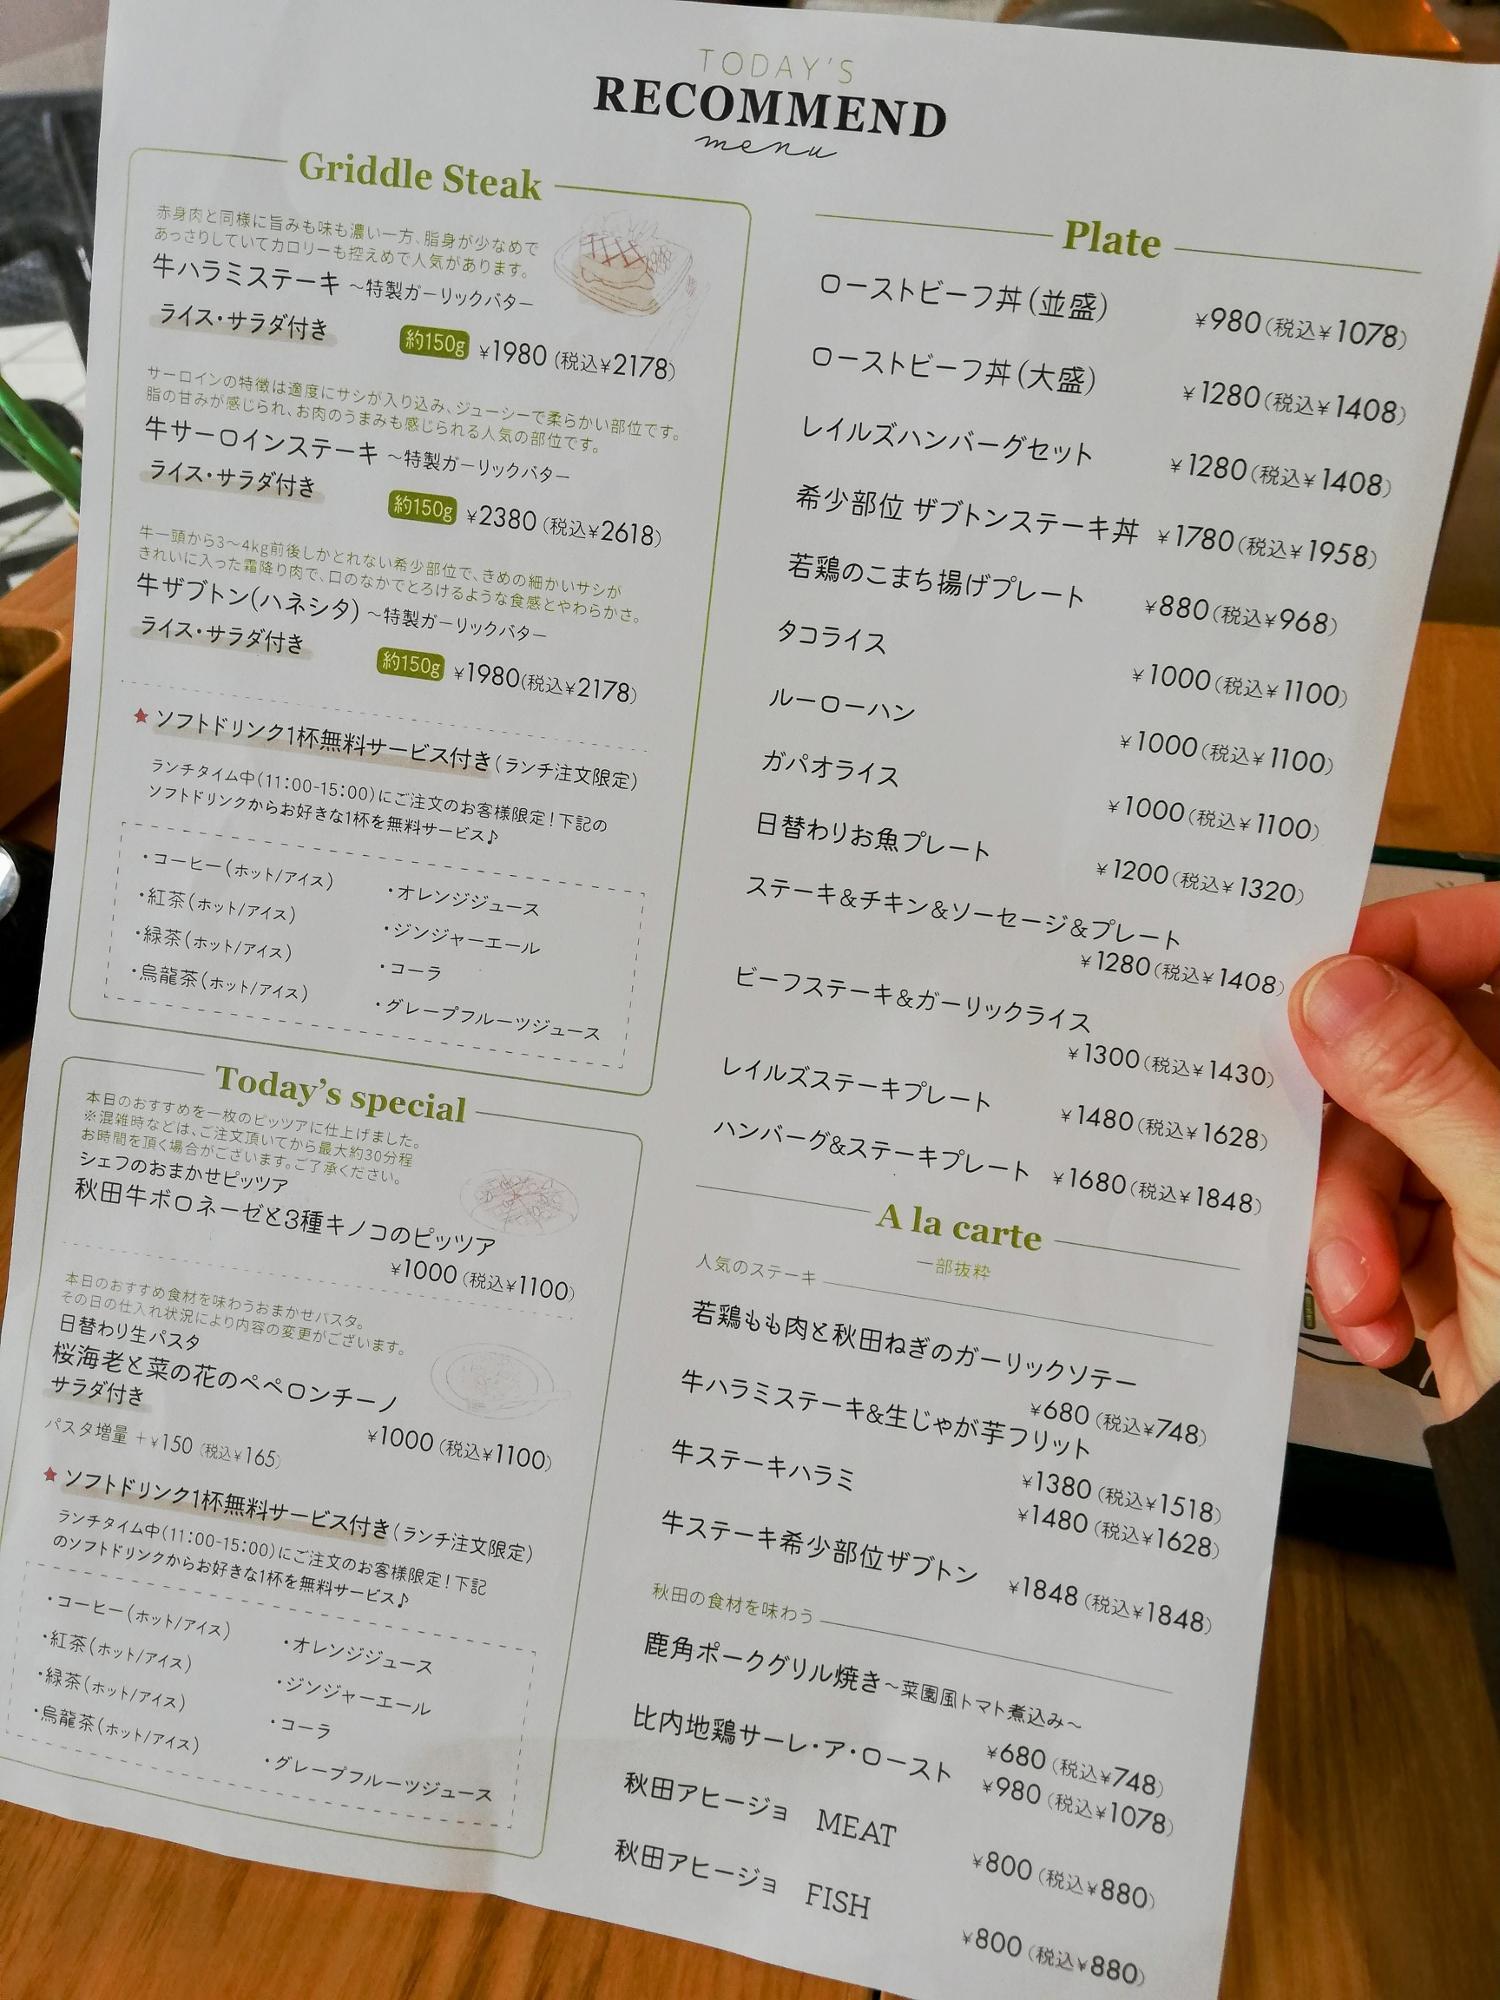 TODAY'S
RECOMMEND
menu
Griddle Steak
赤身肉と同様に旨みも味も濃い一方、脂身が少なめで
あっさりしていてカロリーも控えめで人気があります。
牛ハラミステーキ ～特製ガーリックバター
ライス・サラダ付き
約150g ¥1980 (税込¥2178)
サーロインの特徴は適度にサシが入り込み、ジューシーで柔らかい部位です。
脂の甘みが感じられ、お肉のうまみも感じられる人気の部位です。
牛サーロインステーキ ～特製ガーリックバター
ライス・サラダ付き
約150g ¥2380 (税込¥2618)
牛一頭から3～4kg前後しかとれない希少部位で、きめの細かいサシが
きれいに入った霜降り肉で、口のなかでとろけるような食感とやわらかさ。
牛ザブトン(ハネシタ) ～特製ガーリックバター
ライス・サラダ付き
約150g ¥1980(税込¥2178)
★ ソフトドリンク1杯無料サービス付き(ランチ注文限定)
ランチタイム中(11:00-15:00)にご注文のお客様限定!下記の
ソフトドリンクからお好きな1杯を無料サービス♪
・コーヒー(ホット/アイス)
・紅茶(ホット/アイス)
・緑茶(ホット/アイス)
・烏龍茶(ホット/アイス)
・オレンジジュース
・ジンジャーエール
・コーラ
・グレープフルーツジュース
Today's special
本日のおすすめを一枚のピッツアに仕上げました。
※混雑時などは、ご注文頂いてから最大約30分程
お時間を頂く場合がございます。ご了承ください。
シェフのおまかせピッツア
秋田牛ボロネーゼと3種キノコのピッツア
¥1000 (税込¥1100)
本日のおすすめ食材を味わうおまかせパスタ。
その日の仕入れ状況により内容の変更がございます。
日替わり生パスタ
桜海老と菜の花のペペロンチーノ
サラダ付き
¥1000 (税込¥1100)
パスタ増量 +¥150 (税込¥165)
★ ソフトドリンク1杯無料サービス付き(ランチ注文限定)
ランチタイム中(11:00-15:00)にご注文のお客様限定!下記
のソフトドリンクからお好きな1杯を無料サービス♪
・コーヒー(ホット/アイス)
・紅茶(ホット/アイス)
・緑茶(ホット/アイス)
・烏龍茶(ホット/アイス)
・オレンジジュース
・ジンジャーエール
・コーラ
・グレープフルーツジュース
Plate
ローストビーフ丼(並盛) ¥980(税込¥1078)
ローストビーフ丼(大盛) ¥1280(税込¥1408)
レイルズハンバーグセット ¥1280(税込¥1408)
希少部位 ザブトンステーキ丼 ¥1780(税込¥1958)
若鶏のこまち揚げプレート ¥880(税込¥968)
タコライス ¥1000(税込¥1100)
ルーローハン ¥1000(税込¥1100)
ガパオライス ¥1000(税込¥1100)
日替わりお魚プレート ¥1200(税込¥1320)
ステーキ&チキン&ソーセージ&プレート
¥1280(税込¥1408)
ビーフステーキ&ガーリックライス
¥1300(税込¥1430)
レイルズステーキプレート ¥1480(税込¥1628)
ハンバーグ&ステーキプレート ¥1680(税込¥1848)
A la carte
一部抜粋
人気のステーキ
若鶏もも肉と秋田ねぎのガーリックソテー
¥680 (税込¥748)
牛ハラミステーキ&生じゃが芋フリット
¥1380 (税込¥1518)
牛ステーキハラミ ¥1480 (税込¥1628)
牛ステーキ希少部位ザブトン ¥1848 (税込¥1848)
秋田の食材を味わう
鹿角ポークグリル焼き～菜園風トマト煮込み～
¥680 (税込¥748)
比内地鶏サーレ・ア・ロースト ¥980 (税込¥1078)
秋田アヒージョ MEAT ¥800 (税込¥880)
秋田アヒージョ FISH ¥800 (税込¥880)